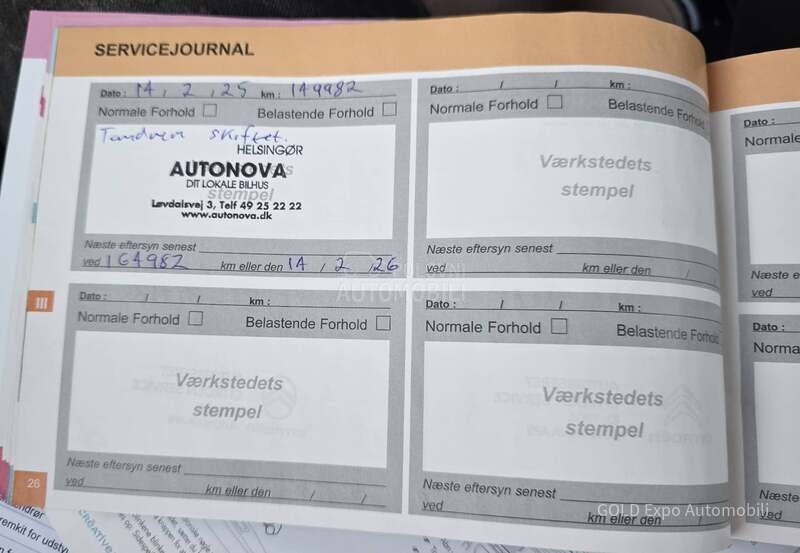 SERVICEJOURNAL
Dato : 14 , 2 , 25 km : 149982
Normale Forhold Belastende Forhold
Tandrem skiftet.
HELSINGØR
AUTONOVA
DIT LOKALE BILHUS
stempel
Løvdalsvej 3, Telf 49 25 22 22
www.autonova.dk
Næste eftersyn senest
ved 164982 km eller den 14 , 2 , 26
Dato : / / km :
Normale Forhold Belastende Forhold
Værkstedets
stempel
Næste eftersyn senest
ved km eller den /
Dato :
Normale
Næste e
ved
AUTOMOBILI
III
Dato : / / km :
Normale Forhold Belastende Forhold
Værkstedets
stempel
Næste eftersyn senest
ved km eller den / /
Dato : / / km :
Normale Forhold Belastende Forhold
Værkstedets
stempel
Næste eftersyn senest
ved km eller den /
Dato :
Norma
Næste
ved
26
GOLD Expo Automobili